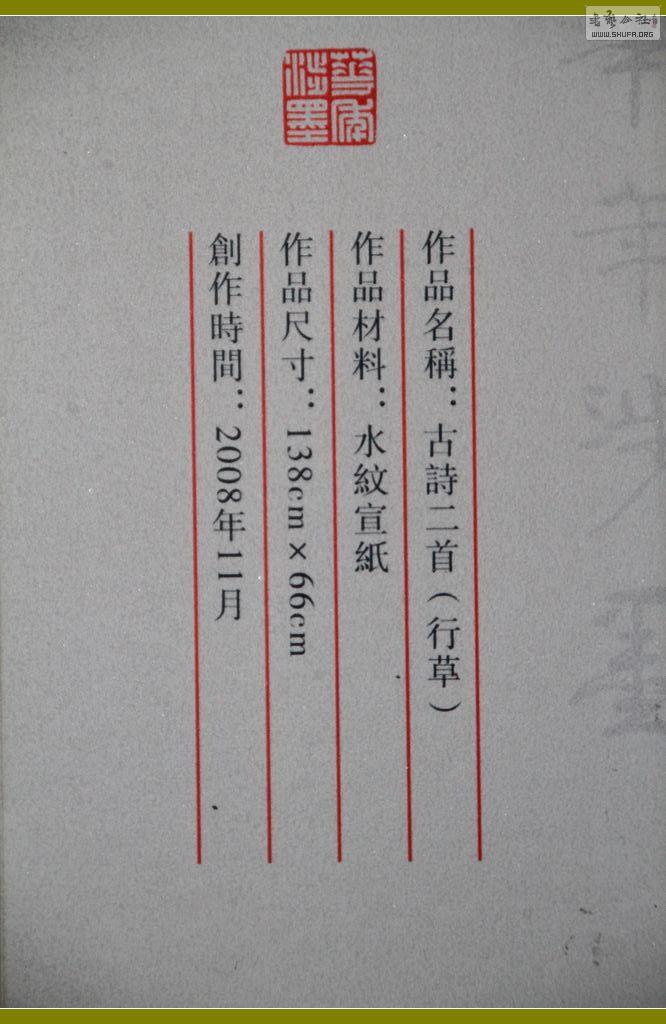 作品名稱：古詩二首（行草）
作品材料：水紋宣紙
作品尺寸：138cm×66cm
創作時間：2008年11月
WWW.SHUFA.ORG